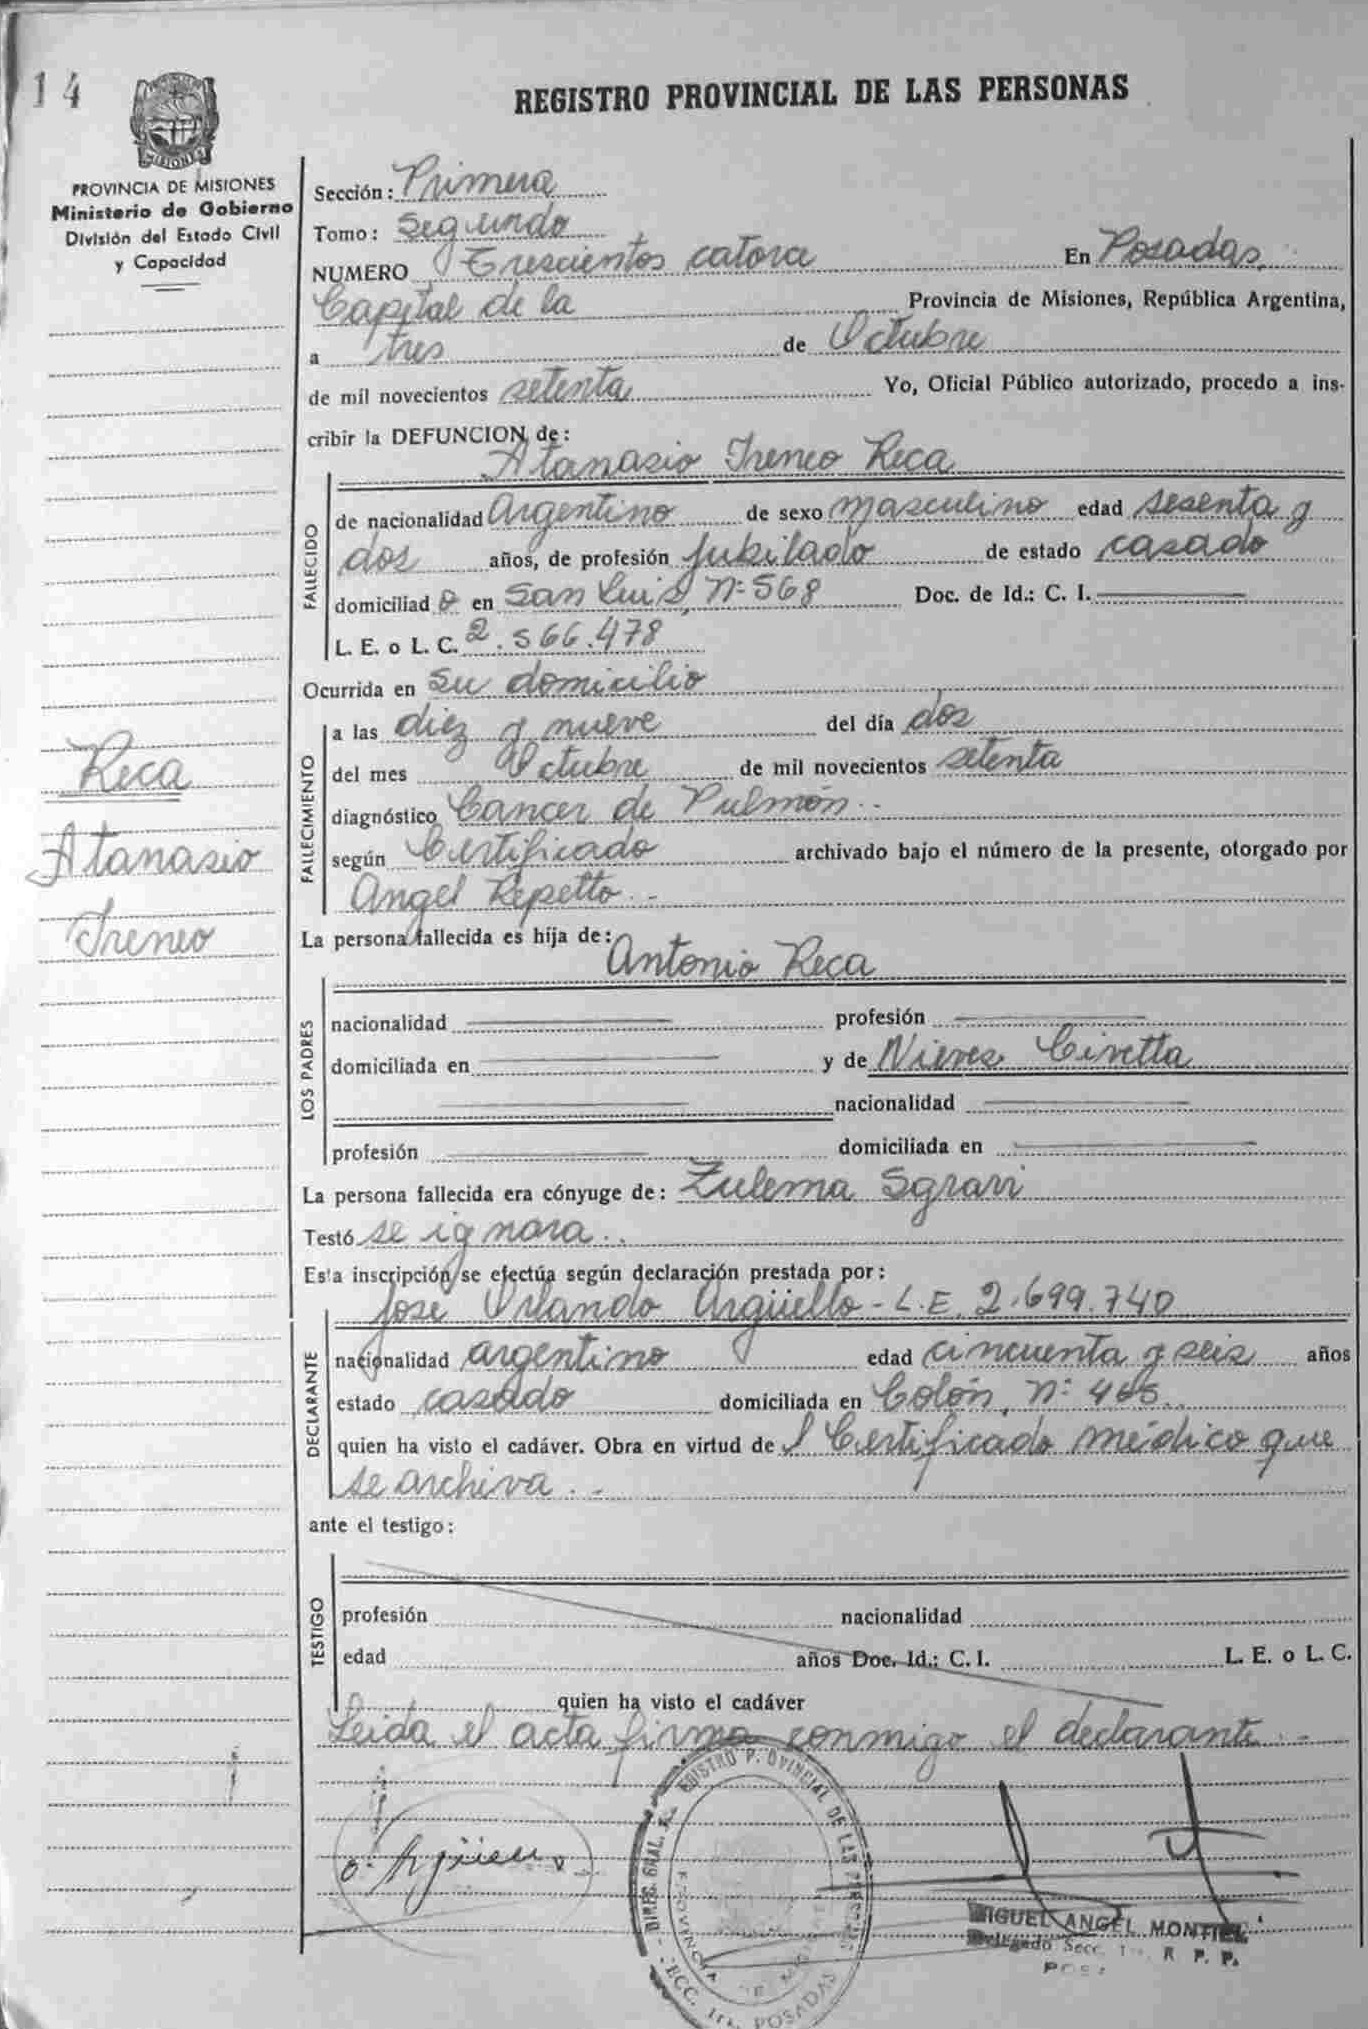 14
REGISTRO PROVINCIAL DE LAS PERSONAS
MISIONES
PROVINCIA DE MISIONES
Ministerio de Gobierno
División del Estado Civil
y Capacidad
Sección: Primera
Tomo: Segundo
NUMERO Trescientos catorce En Posadas,
Capital de la Provincia de Misiones, República Argentina,
a tres de Octubre
de mil novecientos setenta Yo, Oficial Público autorizado, procedo a ins-
cribir la DEFUNCION de:
Atanasio Ireneo Reca
FALLECIDO
de nacionalidad Argentino de sexo masculino edad sesenta y
dos años, de profesión jubilado de estado casado
domiciliad o en San Luis, Nº 568 Doc. de Id.: C. I.
L. E. o L. C. 2.566.478
Ocurrida en su domicilio
FALLECIMIENTO
a las diez y nueve del día dos
del mes Octubre de mil novecientos setenta
diagnóstico Cancer de Pulmón..
según Certificado archivado bajo el número de la presente, otorgado por
Angel Repetto. -
Reca
Atanasio
Ireneo
La persona fallecida es hija de:
Antonio Reca
LOS PADRES
nacionalidad profesión
domiciliada en y de Nieves Civetta
nacionalidad
profesión domiciliada en
La persona fallecida era cónyuge de: Zulema
Testó se ignora..
Esta inscripción se efectúa según declaración prestada por:
Jose Orlando Argüello - L.E. 2.699.740
DECLARANTE
nacionalidad argentino edad cincuenta y seis años
estado casado domiciliada en Colón, Nº
quien ha visto el cadáver. Obra en virtud de l Certificado médico que
se archiva. -
ante el testigo:
TESTIGO
profesión nacionalidad
edad años Doc. Id.: C. I. L. E. o L. C.
quien ha visto el cadáver
Leida el acta firma conmigo el declarante. -
O. Argüello
DIREC. GRAL. REGISTRO PROVINCIAL DE LAS PERSONAS
PROVINCIA DE MISIONES
SECC. 1ra. POSADAS
MIGUEL ANGEL MONTIEL
Delegado Secc. R. P. P.